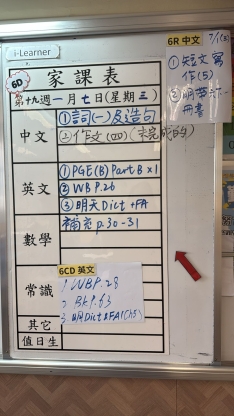 i-Learner
6D
家課表
第十九週一月七日(星期三)
中文
①詞(一)及造句
②作文(四)(未完成的)
英文
①PGE(B) Part B x1
②WB P.26
③明天Dict + FA
數學
補充p.30-31
常識
其它
值日生
6CD 英文
1. WB P.28
2. Bk P.63
3. 明Dict & FA1(Ch5)
6R 中文
7/1(三)
①短文寫
作(5)
②明帶六下一
冊書